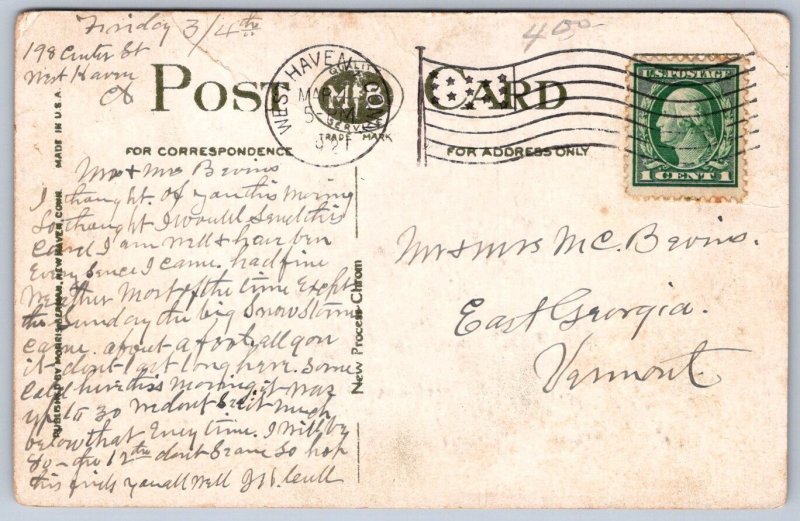 Friday 3/4th
198 Center St
West Haven
Ct
4.00
POST CARD
WEST HAVEN
MAR
5 PM
1921
CONN
QUALITY
M B CO
SERVICE
TRADE MARK
U.S. POSTAGE
1 CENT 1
FOR CORRESPONDENCE
FOR ADDRESS ONLY
MADE IN U.S.A.
PUBLISHED BY MORRIS BERMAN, NEW HAVEN, CONN.
New Process Chrom
Mr + Mrs Bevins
I thought of you this Moring
So thought I would Send this
Card I am well + have ben
Every sence I came. had fine
Weather Most of the time Except
the Sunday the big Snow storm
came. about a foot all gon
it dont last long here. Some
cold here this Morning it was
up to 30 we dont See it Much
below that Eney time. I will be
80 - the 12th dont Seame So hop
this finds you all well
Mr + Mrs Mc. Bevins.
East Georgia.
Vermont.